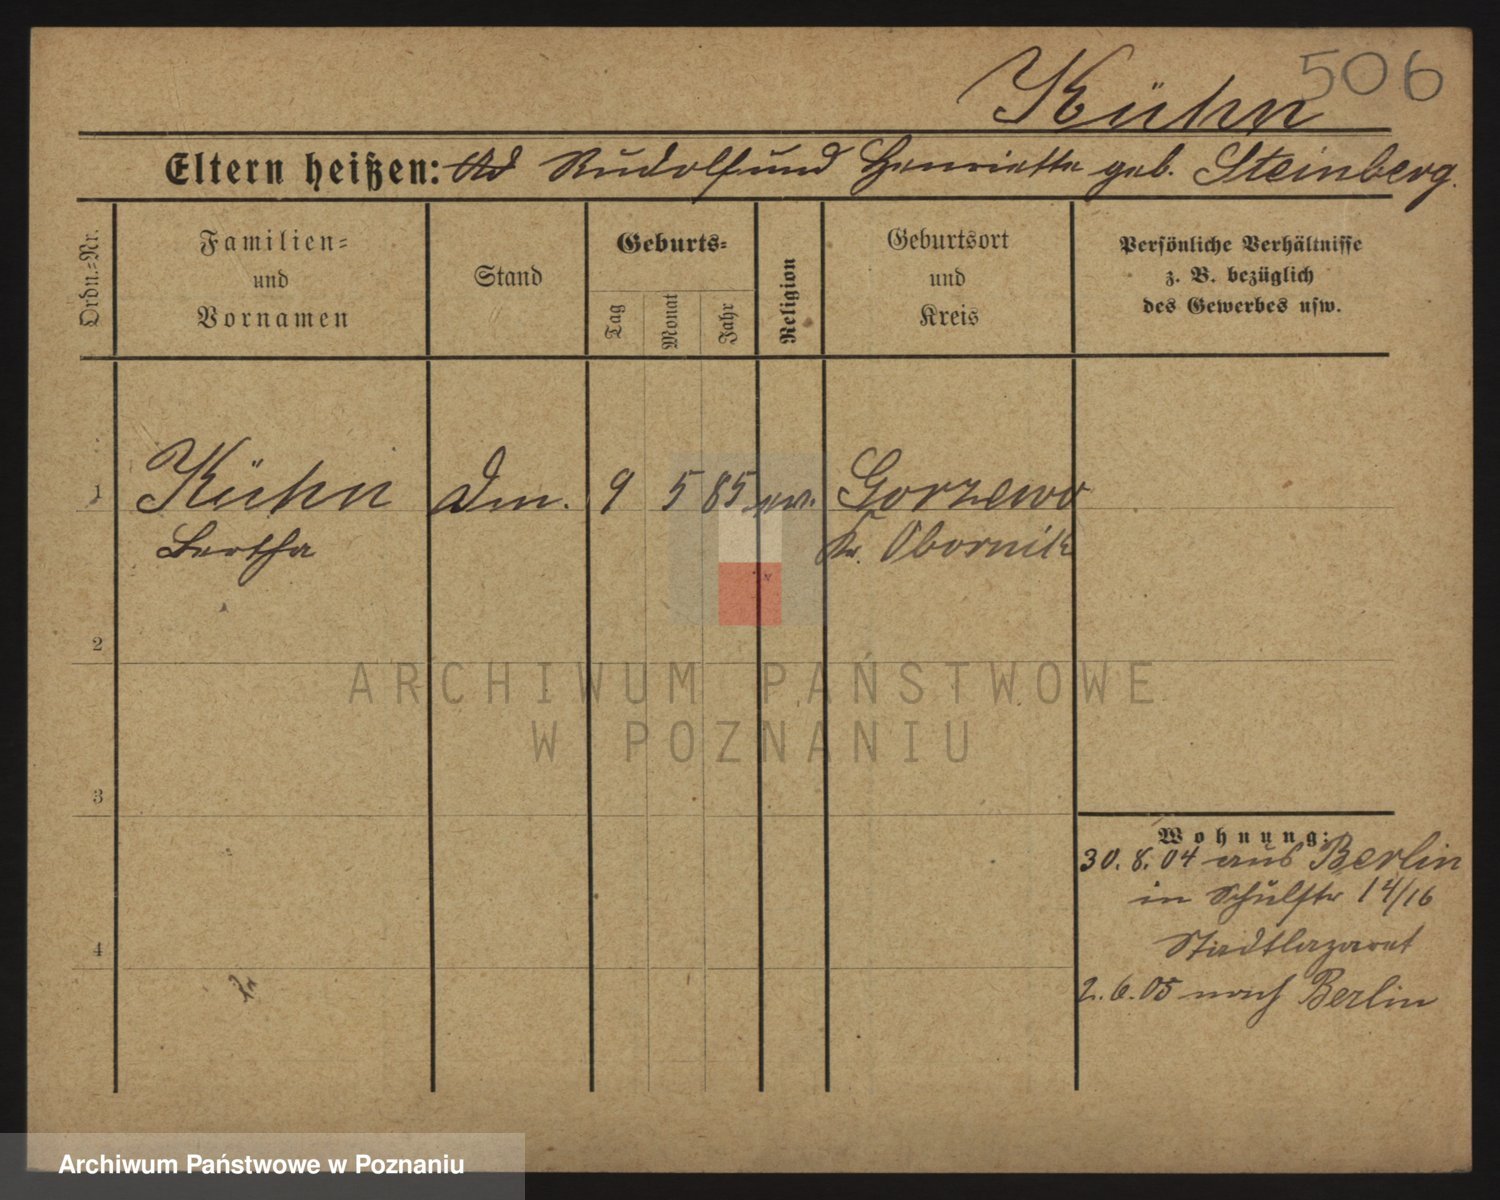 506
Kühn
Eltern heißen: Rudolf und Henriette geb. Steinberg.
Ordn.=Nr.
Familien=
und
Vornamen
Stand
Geburts=
Tag
Monat
Jahr
Religion
Geburtsort
und
Kreis
Persönliche Verhältnisse
z. B. bezüglich
des Gewerbes usw.
1 Kühn 9 5 85 ev. Gorzewo
Bertha Kr. Obornik
2
3
4
Wohnung:
30.8.04 aus Berlin
in Schulstr 14/16
Stadtlazaret
2.6.05 nach Berlin
ARCHIWUM PAŃSTWOWE
W POZNANIU
Archiwum Państwowe w Poznaniu